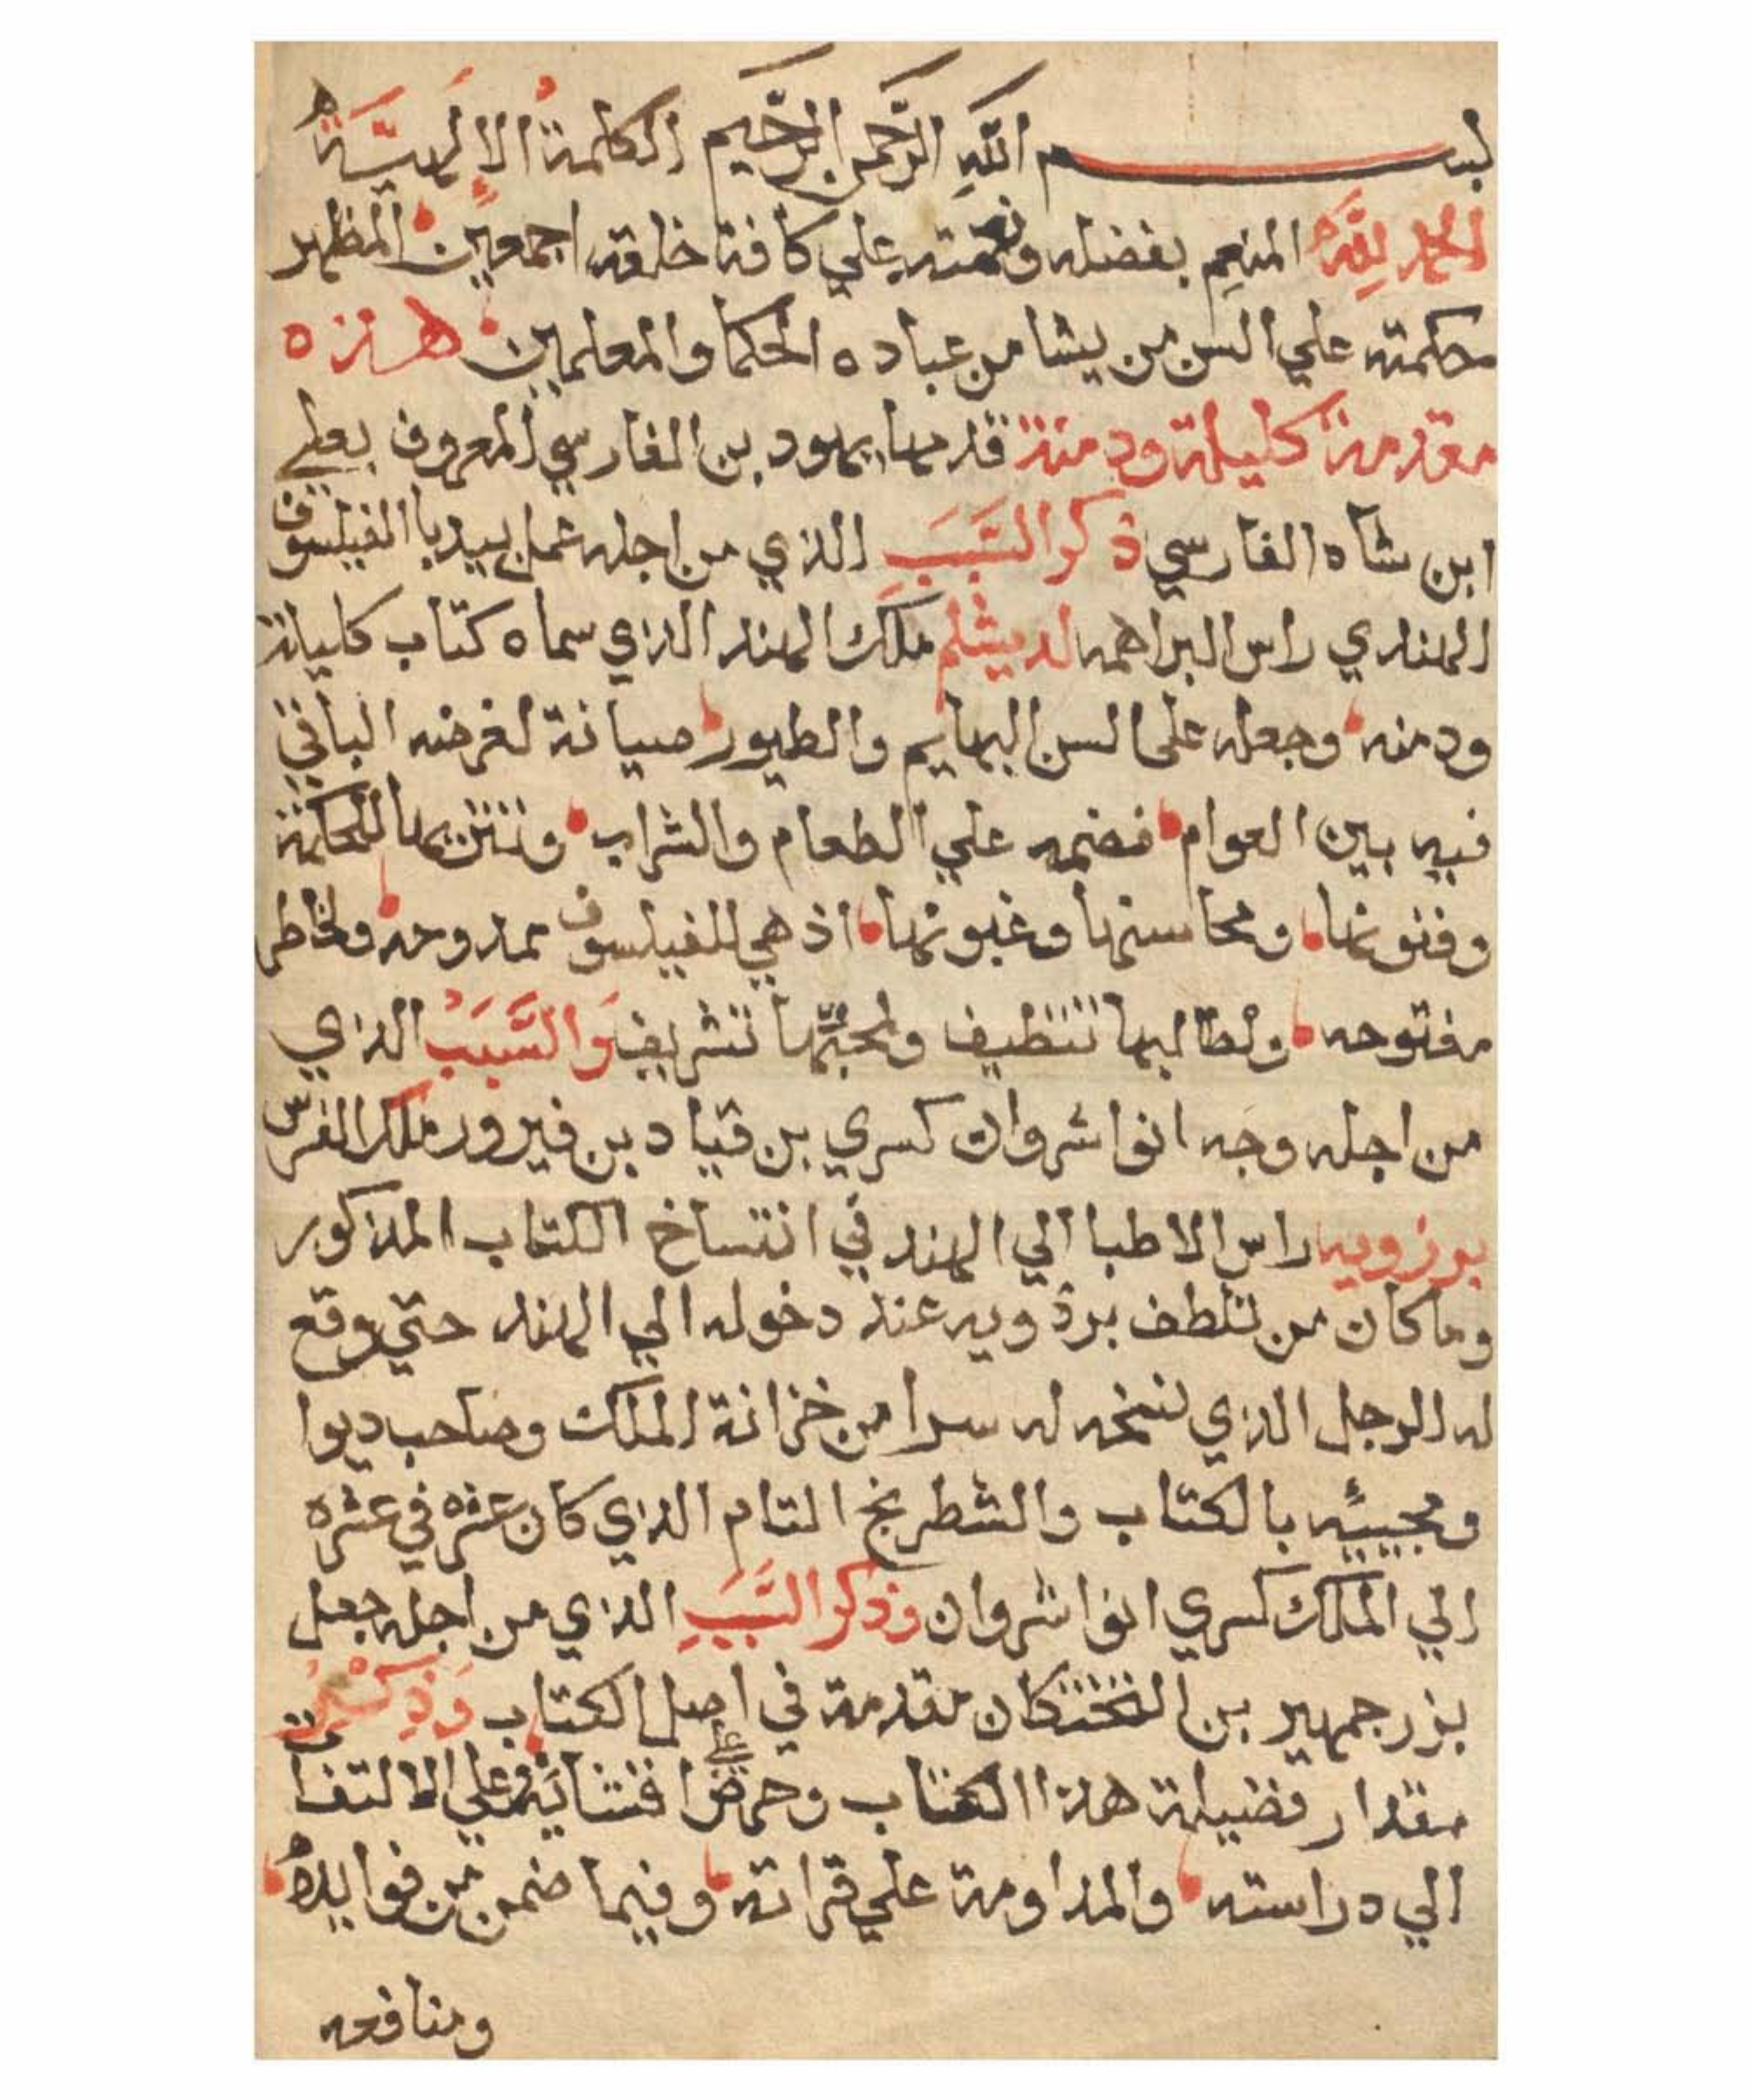 بسم الله الرَّحمن الرَّحيم الكلمةُ الالهيَّةُ
الحمد لِلَّهِ المنعِم بفضله ونعمته علي كافة خلقه اجمعين المظهر
حكمته علي السن من يشا من عباده الحكما والمعلمين هذه
مقدمة كليلة ودمنة قدمها بهود بن الفارسي المعروف بعلي
ابن شاه الفارسي ذكر السَّبَبِ الذي من اجله عمل بيدبا الفيلسوف
الهندي راس البراهمه لدبشلم ملك الهند الذي سماه كتاب كليلة
ودمنه وجعله على السن البهايم والطيور صيانة لغرضه الباقي
فيه بين العوام فضمه علي الطعام والشراب وتنزيها للحكمة
وفنونها ومحاسنها وغيونها اذ هي للفيلسوف ممدوحه ولخاطر
مفتوحه ولطالبها تنظيف ولمحبِّها تشريف وَالسَّبَبُ الذي
من اجله وجه انوا شروان كسري بن قياد بن فيرور ملك الفرس
بورزويه راس الاطبا الي الهند في انتساخ الكتاب المذكور
وما كان من تلطف برذويه عند دخوله الي الهند حتي وقع
له الرجل الذي نسخه له سرا من خزانة الملك وصاحب ديوا
ومجييه بالكتاب والشطرنج التام الذي كان عشره في عشره
الي الملك كسري انوا شروان وذكر السَّبَبِ الذي من اجله جعل
بزرجمهير بن البختكان مقدمة في اصل الكتاب وَذِكر
مقدار فضيلة هذا الكتاب وحض علي الالتفات
الي دراسته والمداومة علي قراته وفيما ضمن من فوايده
ومنافعه